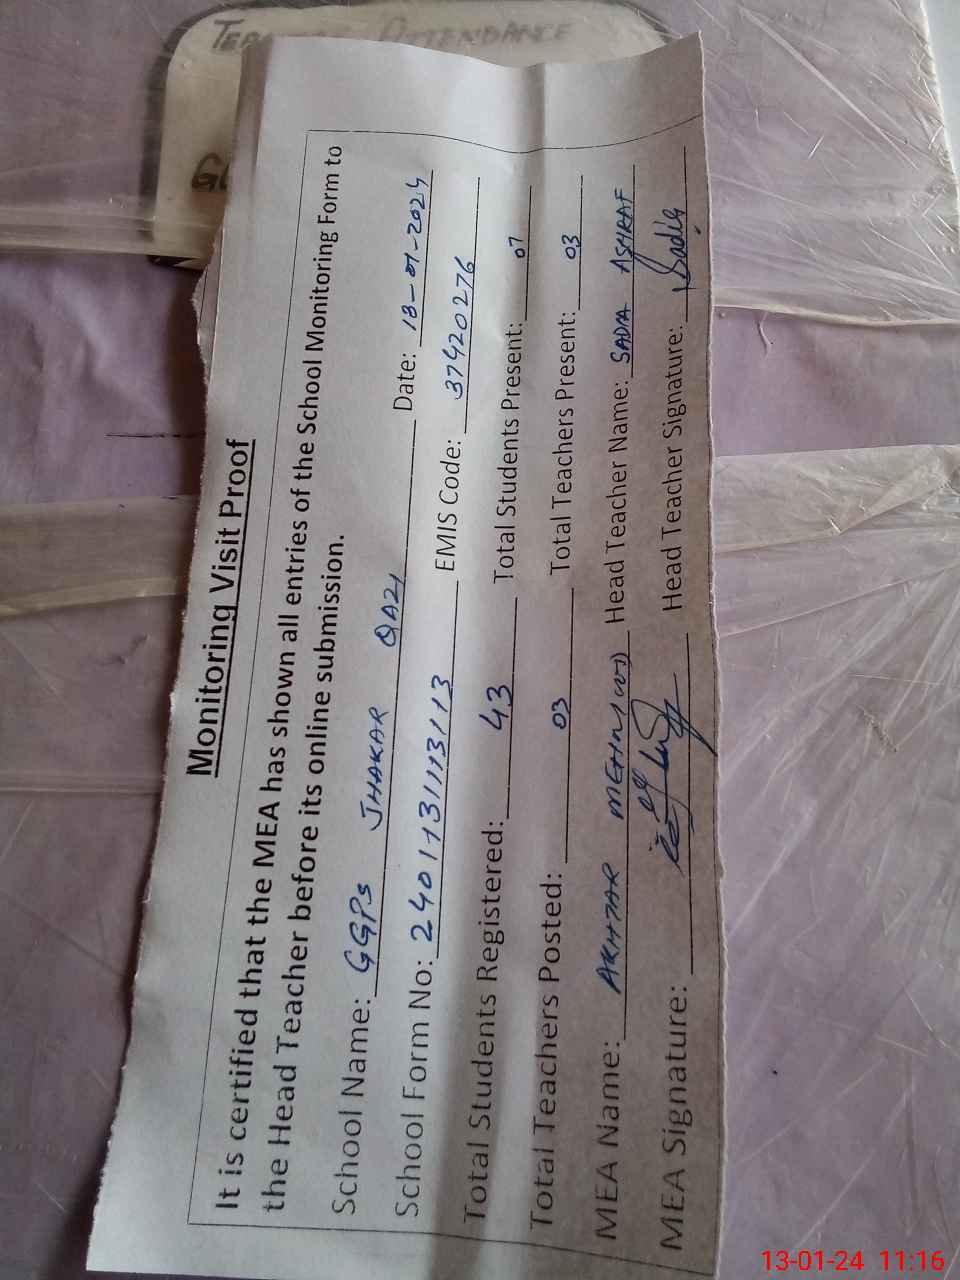 TEACHER ATTENDANCE
Monitoring Visit Proof
It is certified that the MEA has shown all entries of the School Monitoring Form to
the Head Teacher before its online submission.
School Name: GGPS JHAKAR QAZI Date: 13-01-2024
School Form No: 2401131113113 EMIS Code: 37420276
Total Students Registered: 43 Total Students Present: 07
Total Teachers Posted: 03 Total Teachers Present: 03
MEA Name: AKHTAR Head Teacher Name: SADIA ASHRAF
MEA Signature: Head Teacher Signature: Sadia
13-01-24 11:16